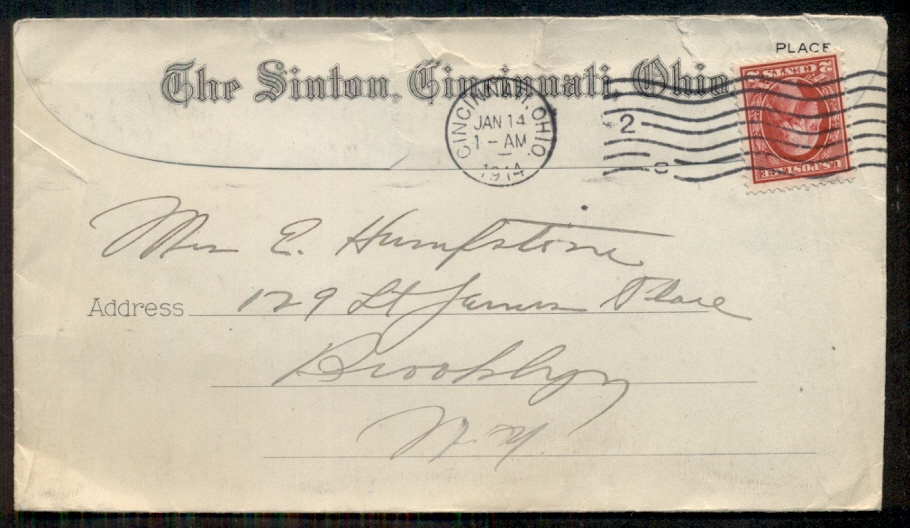 PLACE
The Sinton, Cincinnati, Ohio
CINCINNATI, OHIO.
JAN 14
1-AM
1914
2
U.S. POSTAGE
2
Miss E. Humpstone
Address 129 St James Place
Brooklyn
N.Y.